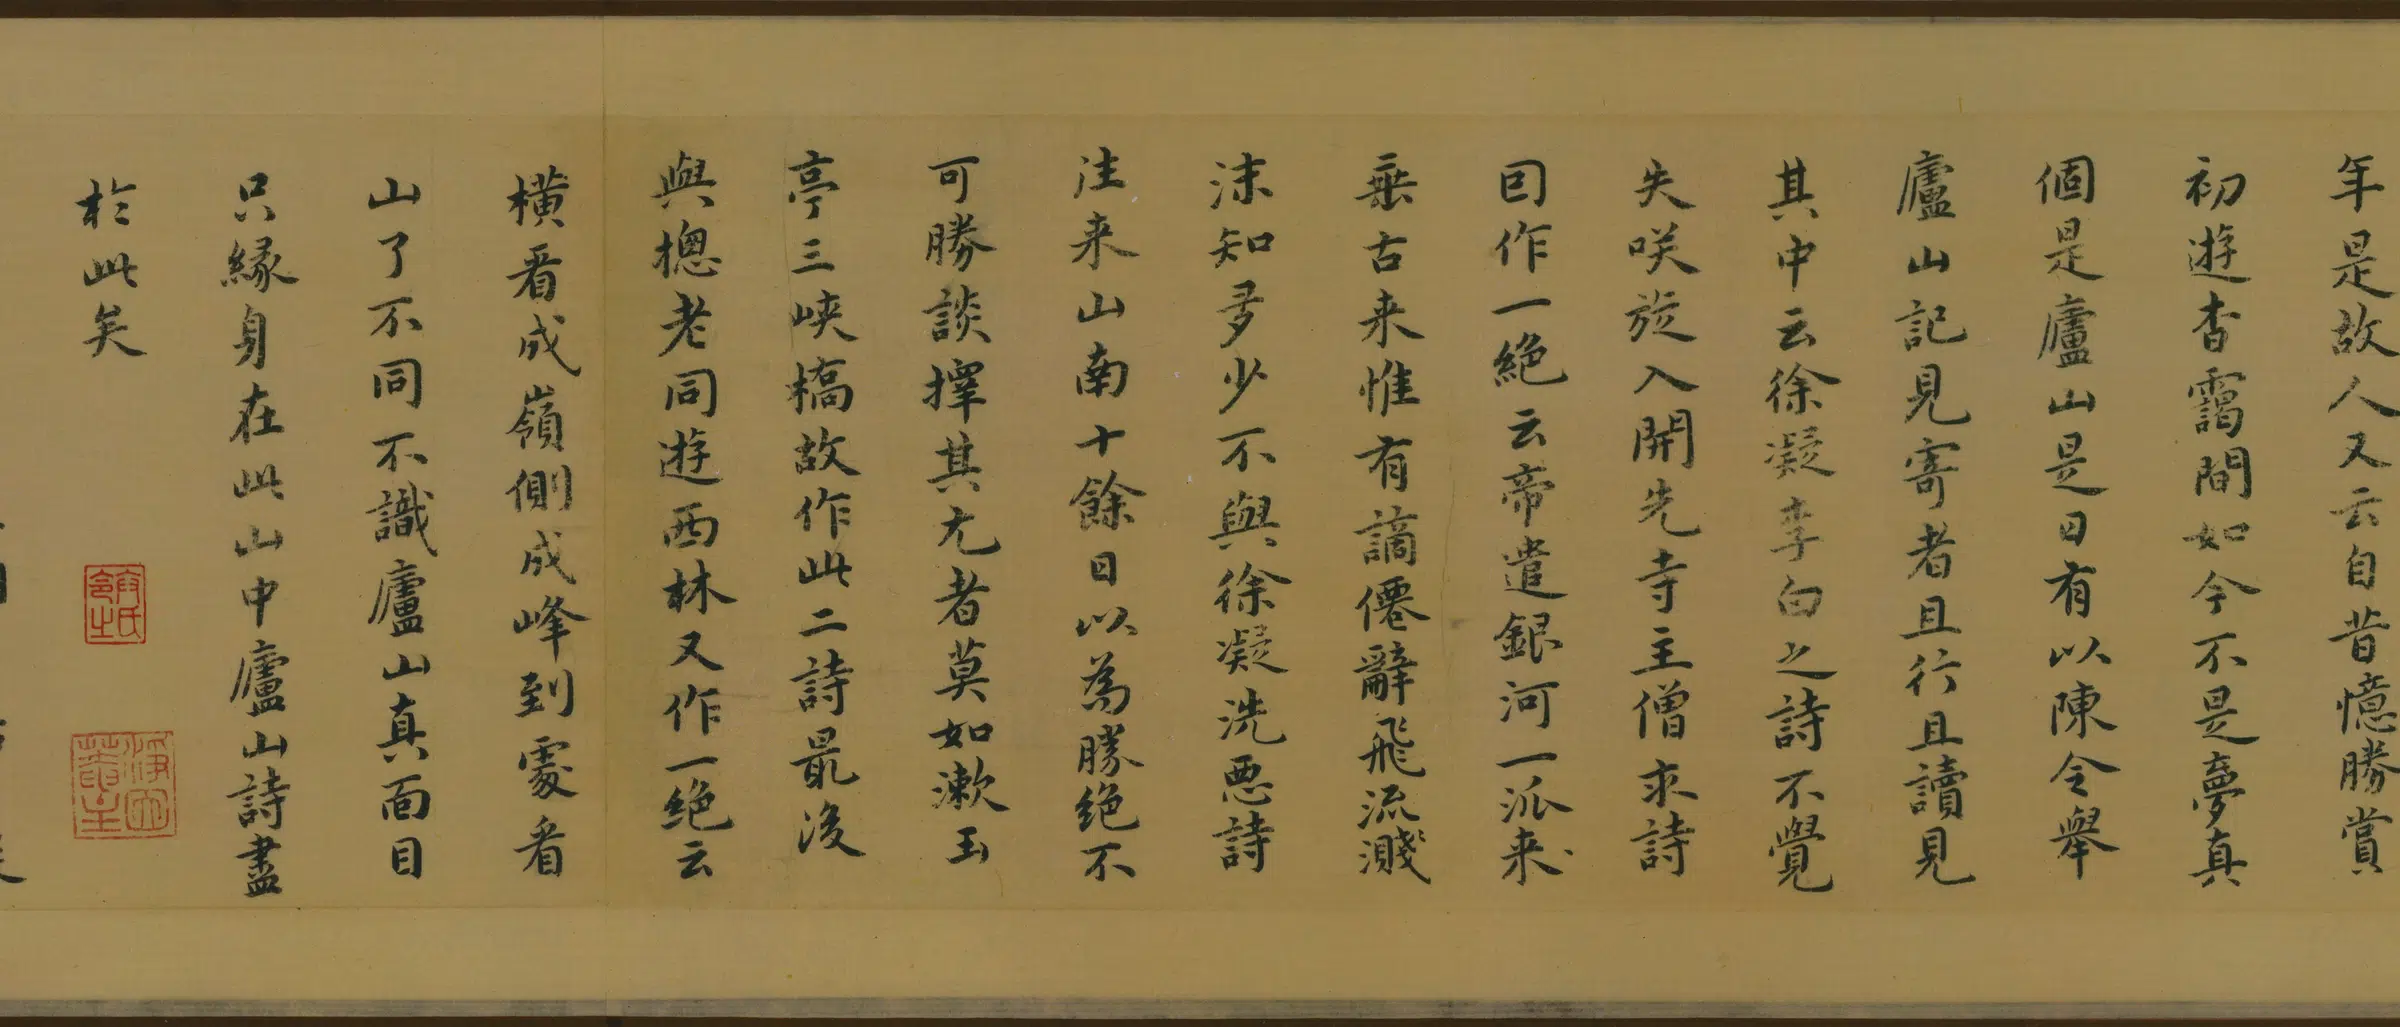 年是故人又云自昔憶勝賞
初遊杳靄間如今不是夢真
個是廬山是日有以陳令舉
廬山記見寄者且行且讀見
其中云徐凝李白之詩不覺
失咲旋入開先寺主僧求詩
囙作一絶云帝遣銀河一派来
垂古来惟有謫僊辭飛流濺
沫知多少不與徐凝洗惡詩
往来山南十餘日以為勝絶不
可勝談擇其尤者莫如漱玉
亭三峽橋故作此二詩最後
與摠老同遊西林又作一絶云
橫看成嶺側成峰到處看
山了不同不識廬山真面目
只緣身在此山中廬山詩盡
於此矣